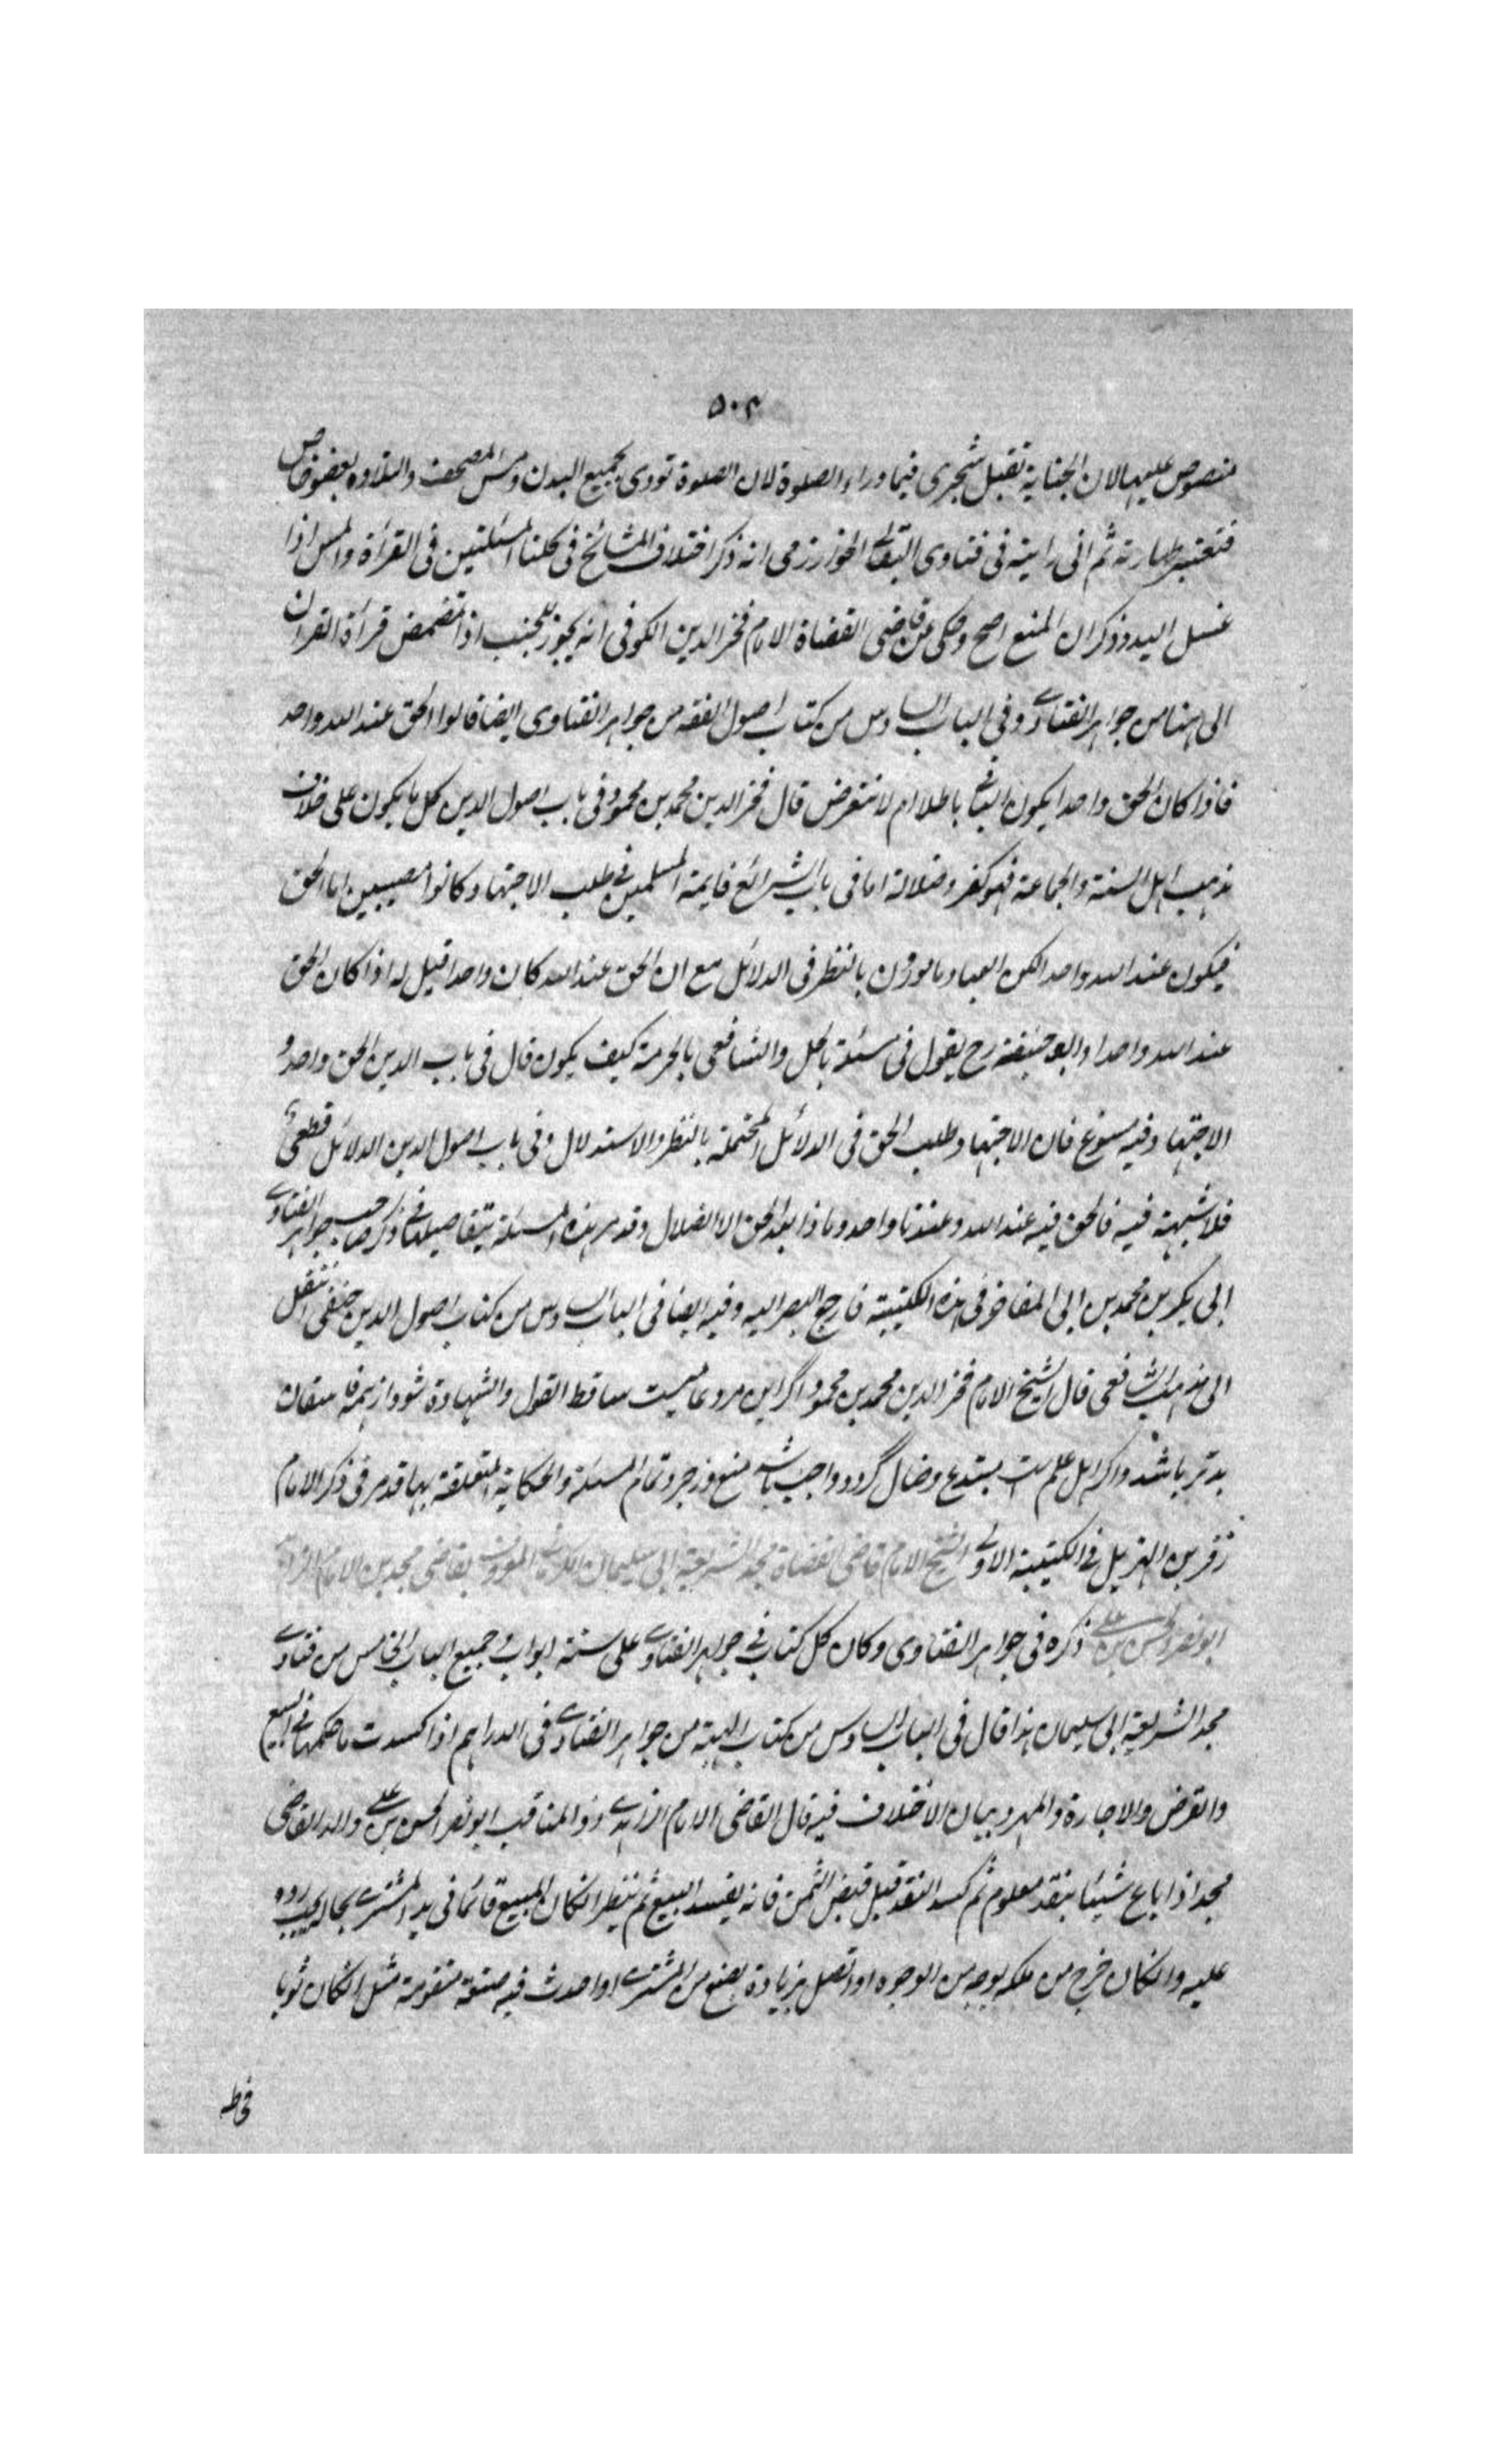 ٥٠٢
منصوص عليها لان الجناية تقبل التجزى فيما وراء الصلوة لان الصلوة تودى بجميع البدن ومس المصحف والتلاوه بعضو خاص
فتعتبر طهارته ثم انى رايته فى فتاوى البقالى الخوارزمى انه ذكر اختلاف المشائخ فى كلتا المسئلتين فى القرأة والمس اذا
غسل اليد وذكر ان المنع اصح وحكى عن قاضى القضاة الامام فخر الدين الكوفى انه يجوز للجنب اذا تمضمض قرأة القران
الى هنا من جواهر الفتاوى وفى الباب السادس من كتاب اصول الفقه من جواهر الفتاوى ايضا قالوا الحق عند الله واحد
فاذا كان الحق واحدا يكون الباقى باطلا ام لا نتعرض قال فخر الدين محمد بن محمود فى باب اصول الدين كل ما يكون على خلاف
مذهب اهل السنة والجماعة فهو كفر وضلالة اما فى باب الشرائع فايمة المسلمين فى طلب الاجتهاد كانوا مصيبين اما الحق
فيكون عند الله واحد الكن العباد مامورون بالنظر فى الدلائل مع ان الحق عند الله كان واحدا قيل له اذا كان الحق
عند الله واحدا وابو حنيفة رح يقول فى مسئلة بالحل والشافعى بالحرمة كيف يكون قال فى باب الدين الحق واحد و
الاجتهاد فيه مسوغ فان الاجتهاد طلب الحق فى الدلائل المحتملة بالنظر والاستدلال وفى باب اصول الدين الدلائل قطعى
فلا شبهة فيه فالحق فيه عند الله وعندنا واحد وماذا بعد الحق الا الضلال وقد مر هذه المسئلة بتفاصيلها فى ذكر صاحب جواهر الفتاوى
ابى بكر بن محمد بن ابى المفاخر فى هذه الكتيبة فارجع البصر اليه وفيه ايضا فى الباب السادس من كتاب اصول الدين حنفى انتقل
الى مذهب الشافعى قال الشيخ الامام فخر الدين محمد بن محمود اگر اين مرد عاميست ساقط القول والشهادة شود از همه فاسقان
بدتر باشد واگر اهل علم است مبتدع وضال گردد واجب باشد منع وزجر وتمام المسئلة والحكاية المتعلقة بها قد مر فى ذكر الامام
زفر بن الهزيل فى الكتيبة الاولى الشيخ الامام قاضى القضاة مجد الشريعة ابى سليمان الكرمانى المعروف بقاضى مجد بن الامام الزاهد
ابو نصر الحسن بن على ذكره فى جواهر الفتاوى وكان كل كتاب فى جواهر الفتاوى على ستة ابواب وجميع الباب الخامس من فتاوى
مجد الشريعة ابى سليمان هذا قال فى الباب السادس من كتاب الهبة من جواهر الفتاوى فى الدراهم اذا كسدت ما حكمها فى البيع
والقرض والاجارة والمهر وبيان الاختلاف فيه قال القاضى الامام الزاهدى ذو المناقب ابو نصر الحسن بن على والد القاضى
مجد اذا باع شيئا بنقد معلوم ثم كسد النقد قبل قبض الثمن فانه يفسد البيع ثم ينظر ان كان المبيع قائما فى يد المشترى بحاله يجب رده
عليه وان كان خرج من ملكه بوجه من الوجوه او اتصل بزيادة بصنع من المشترى او احدث فيه صنعة متقومة مثل ان كان ثوبا